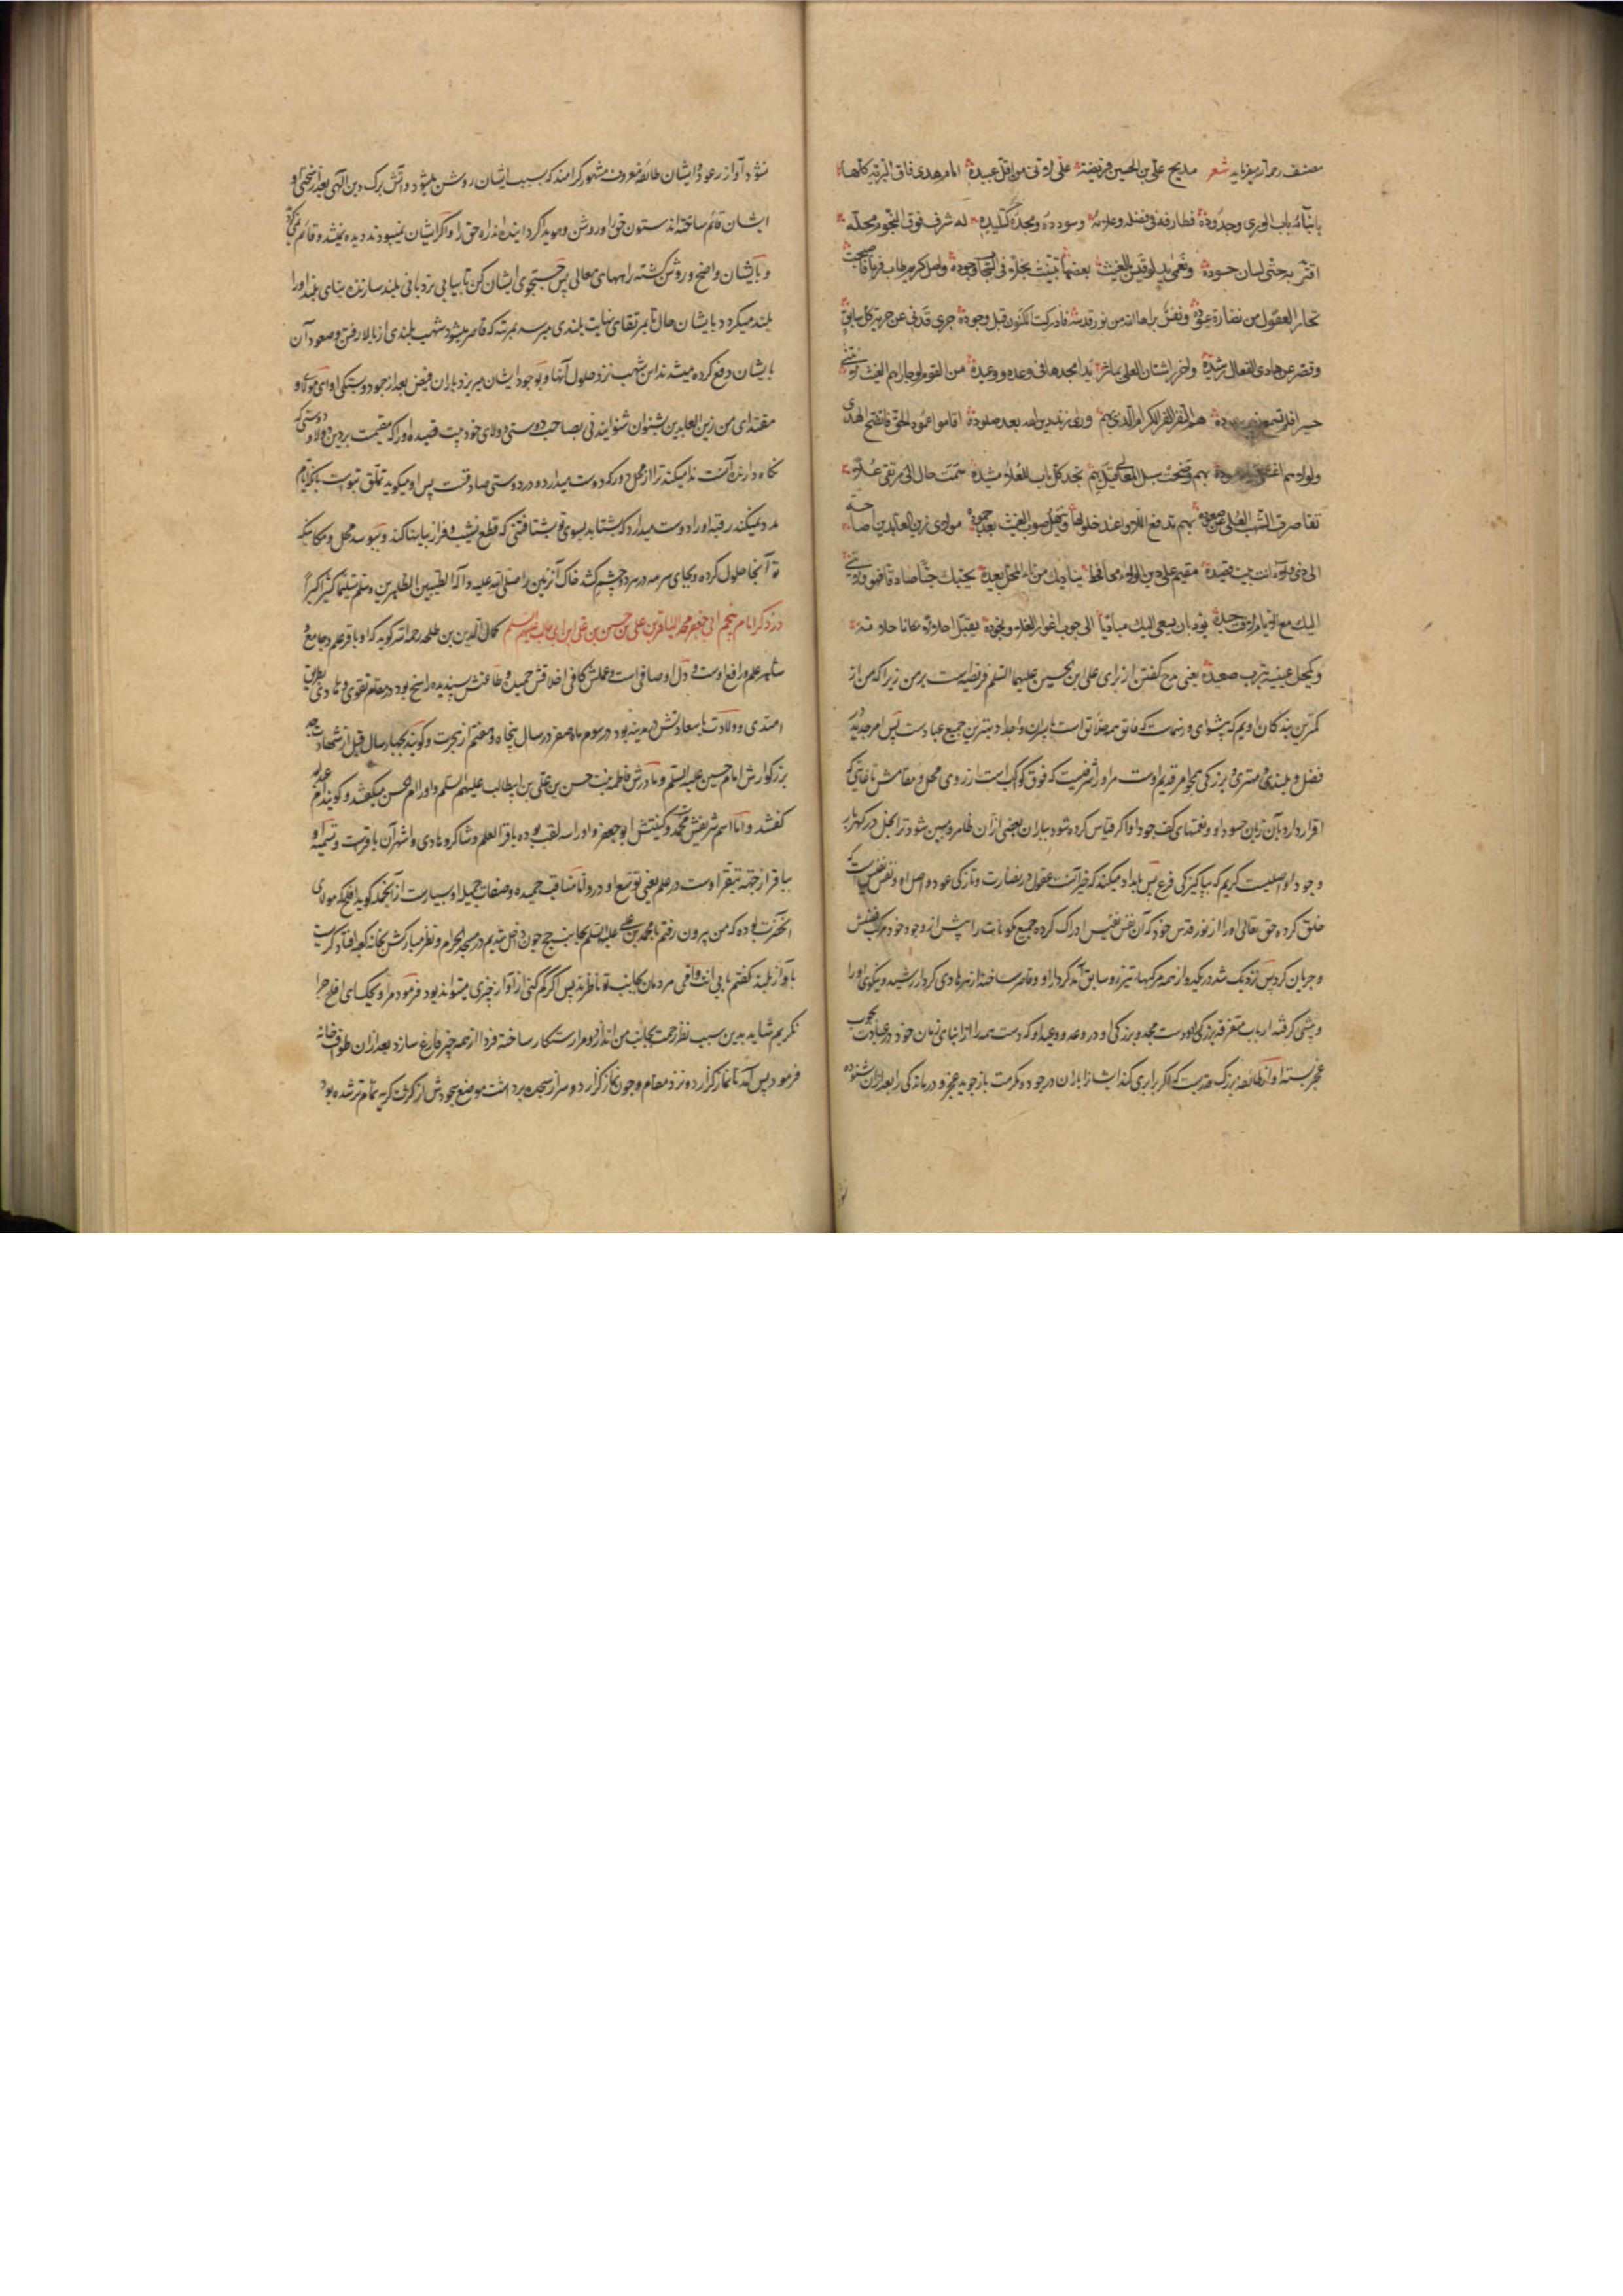 مصنف رحمه الله میفرماید شعر مدیح علی بن الحسین فریضة علی لانی من اقل عبیده امام هدی فاق البریة کلها
بابنائه باب الوری وجدوده فطارفه فی فضله وعلائه وسودده ومجده کتلیده له شرف فوق النجوم محله
اقر به حتی لسان حسوده ونعمی ید لو قیس الغیث بعضها تبینت بخلا فی السحاب وجوده واصل کریم طاب فرعا فاصبحت
تحار العقول من نضارة عوده ونفس براها الله من نور قدسه فادرکت المکنون قبل وجوده جری فدنی عن جریه کل سابق
وقصر عن هادی الفعال رشیده واحرز اشتات العلی بماثر بدا مجدها فی وعده ووعیده من القوم لو جاراهم الغیث
هم النفر الغر الکرام الذی بهم وری زند دین الله بعد صلوده اقاموا عمود الحق فاتضح الهدی
ولولاهم بهم وضحت سبل المعالی بهم تجد کل باب للعلاء مشیده سمت حال الی مرتقی علائه
تقاصرت الشهب العلی عن صعوده بهم تدفع اللأواء عند حلولها وینهل صوب الغیث بعد جموده مولای زین العابدین اصاخة
الی ذی ولاء انت بیت قصیده مقیم علی دین الولاء محافظ ینادیک من نائی المحل بعیده یحبک حبا صادقا فهو لا ینی
الیک مع الایام لافت جیده یود بان یسعی الیک مباشرا الی جوب اغوار الفلاء ونجوده یقبل اجلالا مکانا حللته
ویکحل عینیه بترب صعیده یعنی مدح گفتن از برای علی بن الحسین علیهما السلام فریضه است بر من زیرا که من از
کمترین بندگان اویم که پیشوای و رهنماست که فائق همه خلائق است پسران واجداد بهترین جمیع عبادست پس امر جدید در
فضل و بلندی و مهتری و بزرگی همچو امر قدیم اوست مر او را شرفیست که فوق کواکب است از روی محل و مقامش تا غایتی که
اقرار دارد بآن زبان حسود او و نعمتهای کف جود او اگر قیاس کرده شود بباران بعضی از آن ظاهر و مبین شود ترا بخل در گهربار
وجود او اصلیست کریم که بپاکیزگی فرع پس بامداد میکند که حیرانست عقول در نضارت و تازگی عود و اصل او و نفس نفیسیست که
خلق کرده حق تعالی او را از نور قدس خود که آن نفس نفیس ادراک کرده جمیع مکونات را پیش از وجود خود
وجریان کرد پس نزدیک شد در یکدو از همه مرکبها تیزرو سابق آمد کردار او و قاصر ساخته از هر هادی کردار رشید و نیکوی او را
وپیشی گرفته ارباب متفرقه بزرگی اوست مجد و بزرگی او در وعده و وعید او که دست همه را از ابنای زمان خود در عبادت محبوب
عجز بسته او از طایفه بزرگ مرتبه‌ست که اگر برابری کند ایشانرا باران در جود و مکرمت باز جوید عجز و درماندگی را بعد از آن شنوده
شود آواز رعود ایشان طائفه معروف مشهور کرامند که بسبب ایشان روشن میشود آتش برگ دین الهی بعد از سختی او
ایشان قائم ساخته‌اند ستون حق را و روشن و هویدا گردانیده‌اند راه حق را و اگر ایشان نمیبودند دیده نمیشد و قائم نمیگشت
و بایشان واضح و روشن گشته راههای معالی پس جستجوی ایشان کن تا بیابی نردبانی بلند سازنده بنای بلند او را
بلند میگردد بایشان حال تا بمرتقای نهایت بلندی میرسد بمرتبه که قاصر میشود شهب بلندی از بالا رفتن و صعود آن
بایشان دفع کرده میشد نزد حلول آنها و بوجود ایشان میریزد باران فیض بعد از جمود و بستگی او ای مولای و
مقتدای من زین العابدین بشنوان شنوایندنی بصاحب دوستی و ولای خود بیت قصیده او را که مقیمست بر دین ولا و دوستی که
نگاه دارنده آنست ندا میکند ترا از محل دور که دوست میدارد و در دوستی صادقست پس او میگوید تملق بتوست با نکه ایام
مدد نمیکند رقبه او را دوست میدارد که بشتابد بسوی تو بشتافتنی که قطع نشیب و فراز بیابانها کند و ببوسد محل و مکانیکه
تو آنجا حلول کرده و بجای سرمه در هر دو چشم کشد خاک آن زمین را صلی الله علیه و آله الطیبین الطاهرین و سلم تسلیما کثیرا کثیرا
در ذکر امام پنجم ابی جعفر محمد الباقر بن علی بن حسین بن علی ابن ابی طالب علیهم السلم کمال الدین بن طلحه رحمه الله گوید که او باقر علم و جامع و
شاهر علم و رافع اوست و دل او صافی است و عملش کافی اخلاقش حمیده و طاعتش پسندیده راسخ بود در مقام تقوی و هادی بطریق
اهتدی و ولادت با سعادتش در مدینه بود در سوم ماه صفر در سال پنجاه و هفتم از هجرت و گویند بچهار سال قبل از شهادت جد
بزرگوارش امام حسین علیه السلم و مادرش فاطمه بنت حسن بن علی بن ابیطالب علیهم السلم و او را ام الحسن میگفتند و گویند ام عبدالله
گفتند و اما اسم شریفش محمد و کنیتش ابو جعفر و او را سه لقب بوده باقر العلم و شاکر و هادی و اشهر آن باقرست و تسمیه او
بباقر از جهة تبقر اوست در علم یعنی توسع او در و اما مناقب حمیده و صفات جمیله او بسیارست از آنجمله گوید افلح که مولای
آنحضرت بوده که من بیرون رفتم با محمد بن علی علیه السلم بجانب حج چون داخل شدیم در مسجد الحرام و نظر مبارکش بخانه کعبه افتاد گریست
بآواز بلند گفتم بابی انت و امی مردمان بجانب تو ناظرند پس اگر کم کنی از آواز چیزی میتواند بود فرمود مرا ویحک ای افلح چرا
نگریم شاید بدین سبب نظر رحمت بجانب من اندازد و مرا رستگار ساخته فردا از همه چیز فارغ سازد بعد از آن طواف خانه
فرمود پس آمد تا نماز گزارد نزد مقام و چون نماز گزارد و سر از سجده برداشت موضع سجودش از کثرت گریه تمام تر شده بود